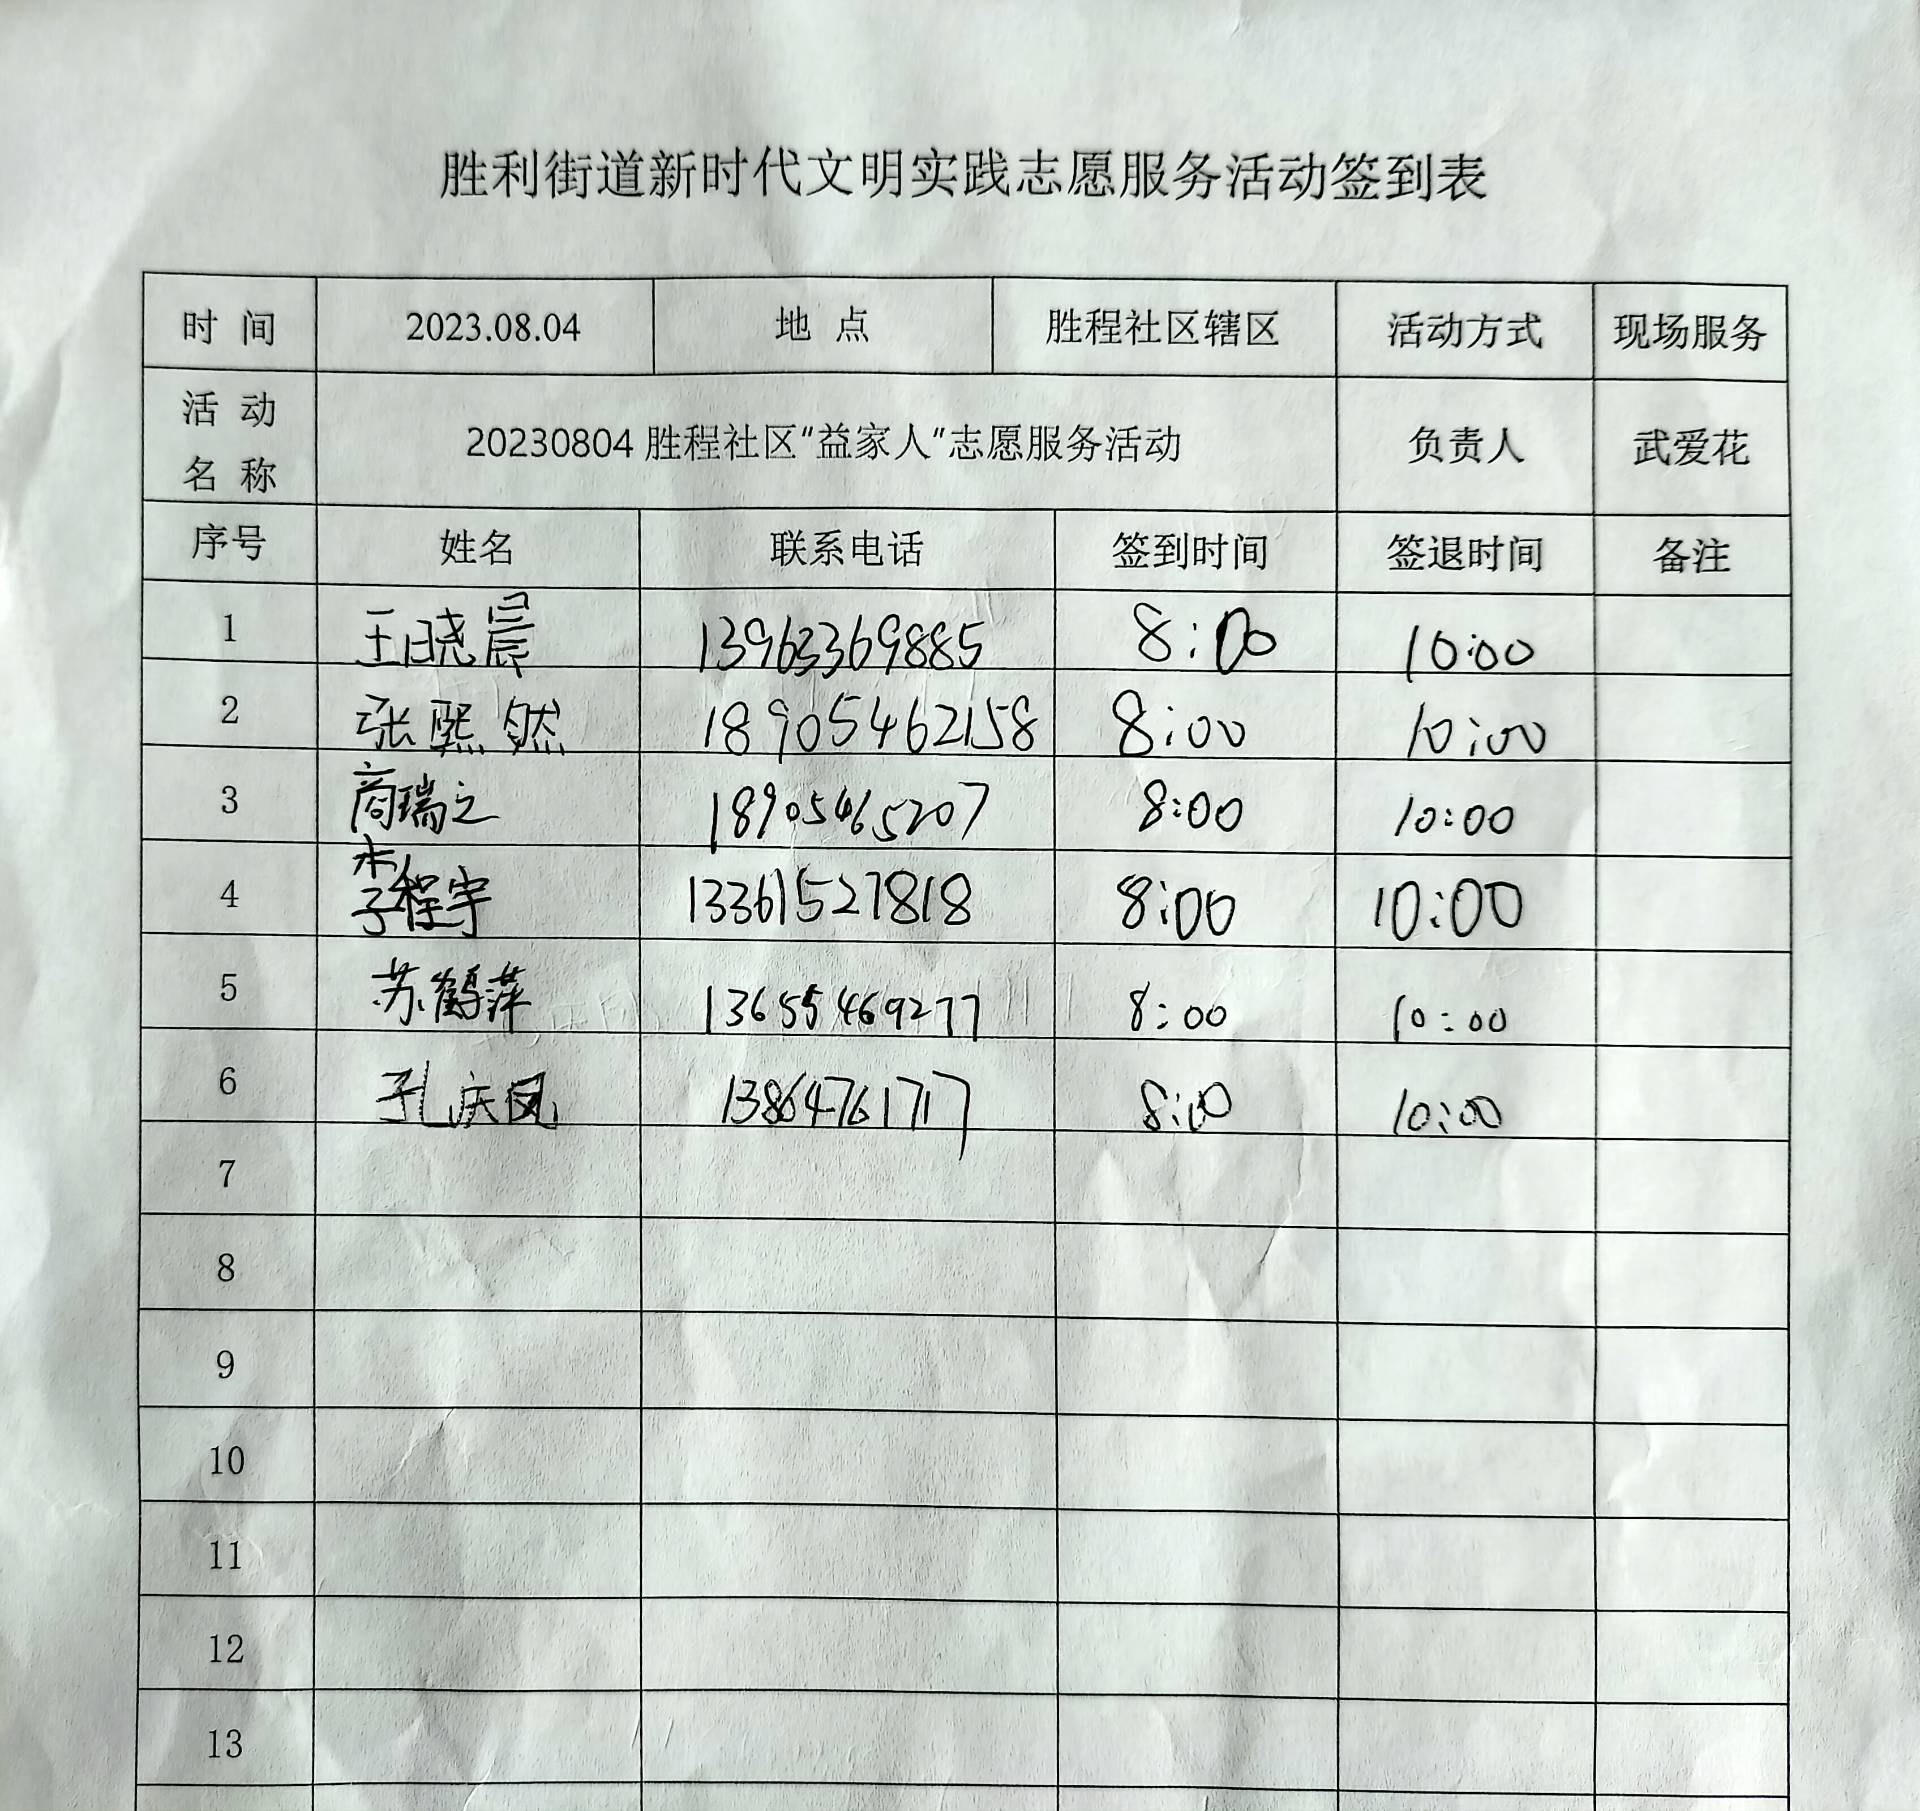 胜利街道新时代文明实践志愿服务活动签到表
时 间 2023.08.04 地 点 胜程社区辖区 活动方式 现场服务
活 动
名 称 20230804 胜程社区“益家人”志愿服务活动 负责人 武爱花
序号 姓名 联系电话 签到时间 签退时间 备注
1 王晓晨 13963369885 8:00 10:00
2 张熙然 18905462158 8:00 10:00
3 商瑞之 18905465207 8:00 10:00
4 李程宇 13361527818 8:00 10:00
5 苏鹤萍 13655469277 8:00 10:00
6 孔庆凤 13864761717 8:00 10:00
7
8
9
10
11
12
13